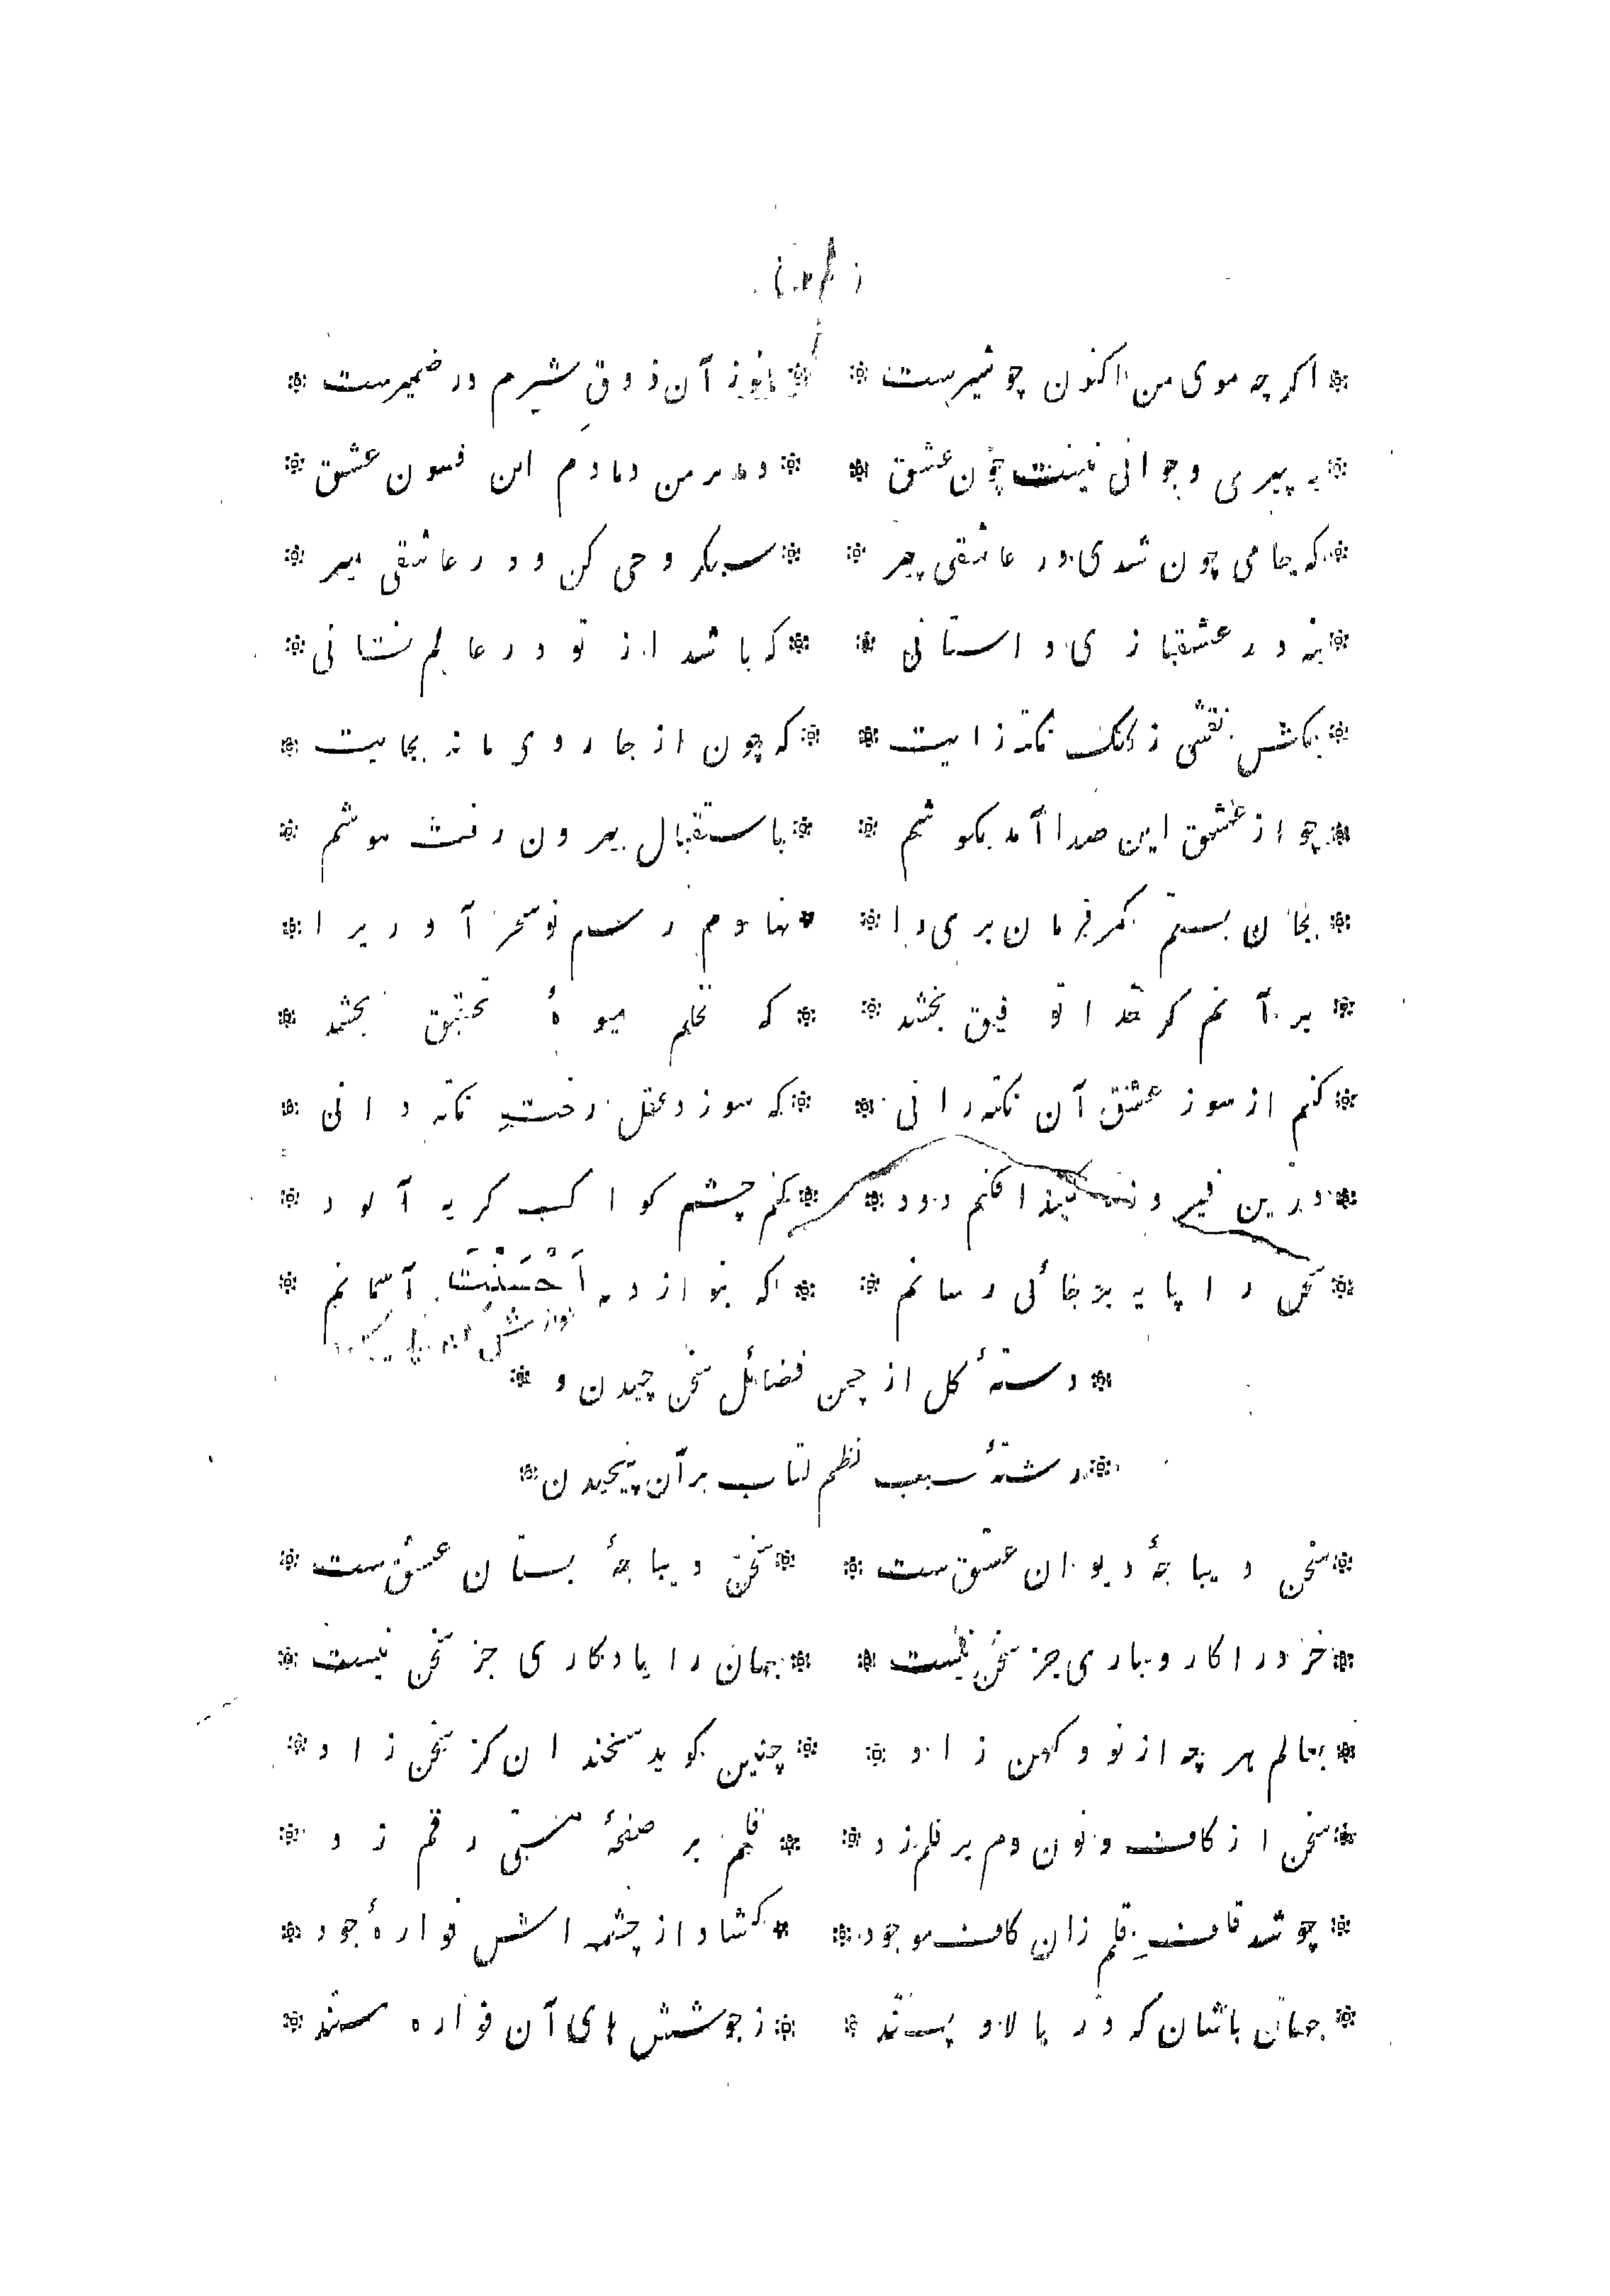 * اکر چه موی من اکنون چو شیرست * هنوز آن ذوق شیرم در ضمیرست *
* به پیری و جوانی نیست چون عشق * دمد بر من دمادم این فسون عشق *
* که جامی چون شدی در عاشقی پیر * سبکروحی کن و در عاشقی میر *
* بنه در عشقبازی داستانی * که باشد از تو در عالم نشانی *
* بکش نقشی ز کلک نکته زایت * که چون از جا روی ماند بجایت *
* چو از عشق این صدا آمد بکوشم * باستقبال بیرون رفت هوشم *
* بجان بستم کمر فرمان بری را * نهادم رسم نو سحر آوریرا *
* بر آنم کر خدا توفیق بخشد * که نخلم میوهٔ تحقیق بخشد *
* کنم از سوز عشق آن نکته رانی * که سوزد عقل رخت نکته دانی *
* درین فیروزه کنبد افکنم دود * کنم چشم کواکب کریه آلود *
* سخن را پایه بر جائی رسانم * که بنوازد به اَحْسَنْتَ آسمانم *
* دستهٔ کل از چمن فضائل سخن چیدن و *
* رشتهٔ سبب نظم کتاب بر آن پیچیدن *
* سخن دیباجهٔ دیوان عشق ست * سخن دیباجهٔ بستان عشق ست *
* خرد را کار و باری جز سخن نیست * جهان را یادکاری جز سخن نیست *
* بعالم هر چه از نو و کهن زاد * چنین کوید سخندان کز سخن زاد *
* سخن از کاف و نون دم بر قلم زد * قلم بر صفحهٔ هستی رقم زد *
* چو شد قاف قلم زان کاف موجود * کشاد از چشمه اش فوارهٔ جود *
* جهان باشان که در بالا و پستند * ز جوشش های آن فواره هستند *